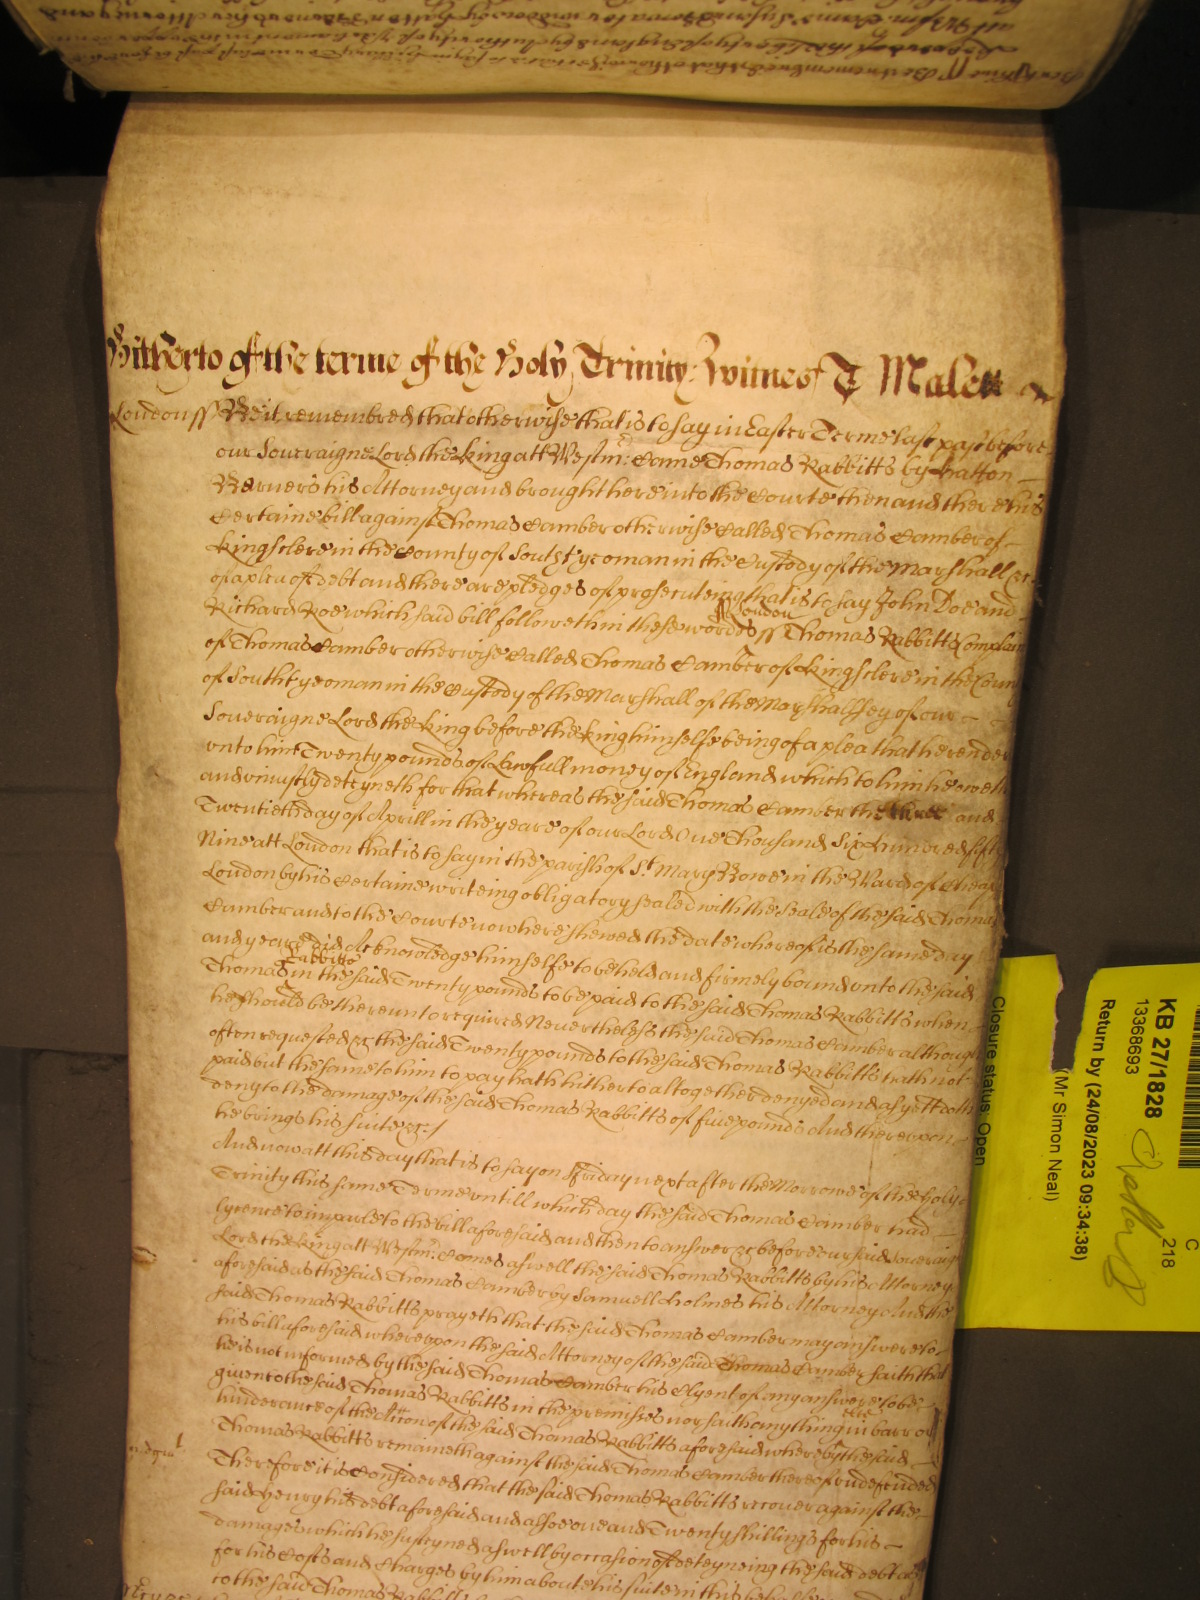 Hitherto of the terme of the Holy Trinity: Witnes T Malett
London ss Be it remembred that otherwise that is to say in Easter Terme last past before
our Soveraigne Lord the King att Westm: Came Thomas Rabbitts by Hatton
Berners his Attorney and brought here into the Courte then and there his
Certaine bill against Thomas Camber otherwise Called Thomas Camber of
Kingsclere in the County of Southt yeoman in the Custody of the Marshall &c
of a plea of debt and there are pledges of prosecuteing that is to say John Doe and
London
Richard Roe which said bill followeth in these wordes ss Thomas Rabbitts Complain
of Thomas Camber otherwise Called Thomas Camber of Kingsclere in the Coun
of Southt yeoman in the Custody of the Marshall of the Marshallsey of our
Soveraigne Lord the King before the King himselfe being of a plea that he render
unto him Twenty pounds of Lawfull money of England which to him he oweth
and uniustly deteyneth for that whereas the said Thomas Camber the three and
Twentieth day of Aprill in the yeare of our Lord One Thousand Six hundred fifty
Nine att London that is to say in the parish of St. Mary Bowe in the Ward of Cheap
London by his Certaine writeing obligatory sealed with the Seale of the said Thomas
Camber and to the Courte now here shewed the date whereof is the same day
and yeare did Acknowledge himselfe to be held and firmely bound unto the said
Rabbitts
Thomas in the said Twenty pounds to be paid to the said Thomas Rabbitts when
he should be thereunto required Neverthelesse the said Thomas Camber although
often requested &c the said Twenty pounds to the said Thomas Rabbitts hath not
paid but the same to him to pay hath hitherto altogether denyed and as yett doth
deny to the damage of the said Thomas Rabbitts of five pounds And thereupon
he brings his suite &c /
And now att this day that is to say on Friday next after the Morrowe of the holy
Trinity this same Terme untill which day the said Thomas Camber had
lycence to imparle to the bill aforesaid and then to answer &c before our said Soveraign
Lord the King att Westm: Comes aswell the said Thomas Rabbitts by his Attorney
aforesaid as the said Thomas Camber by Samuell Holmes his Attorney And the
said Thomas Rabbitts prayeth that the said Thomas Camber may answere to
his bill aforesaid whereupon the said Attorney of the said Thomas Camber saith that
he is not informed by the said Thomas Camber his Clyent of any answere to be
given to the said Thomas Rabbitts in the premisses nor saith any thing in barr or
else
hinderance of the Action of the said Thomas Rabbitts aforesaid whereby the said
Thomas Rabbitts remaineth against the said Thomas Camber thereof undefended
Therefore it is Considered that the said Thomas Rabbitts recover against the
said Henry his debt aforesaid and alsoe one and Twenty shillings for his
damages which he susteyned aswell by occasion of deteyneing the said debt as
for his Costs and Charges by him about his suite in this behalfe
to the said Thomas Rabbitts
KB 27/1828
13368693
Return by (24/08/2023 09:34:38)
(Mr Simon Neal)
Closure status: Open
C
218